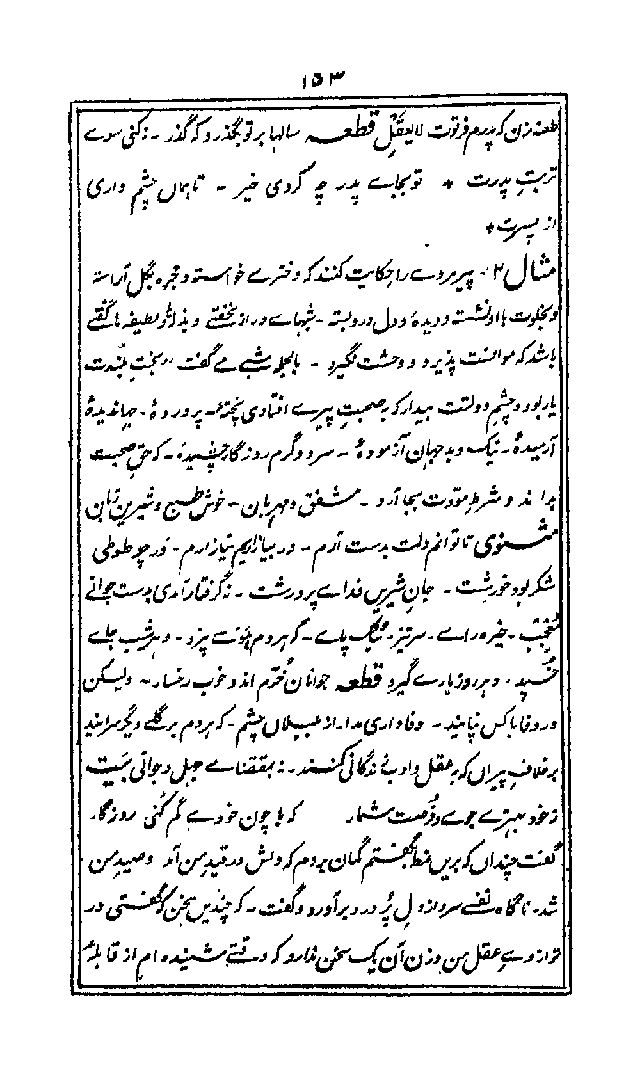 ۱۵۳
طعنه زن که پدرم فرتوت لایعقل قطعه سالها بر تو بگذرد که گذر - نکنی سوے
تربت پدرت * تو بجاے پدر چه کردی خیر - تا همان چشم داری
از پسرت *
مثال ۲ - پیر مردے را حکایت کنند که دخترے خواسته و حجره بگل آراسته
و بخلوت با او نشسته و دیده و دل درو بسته - شبهاے دراز نخفتے و بذلها و لطیفه ها گفتے
باشد که موانست پذیرد و وحشت نگیرد - بالجمله شبے مے گفت بخت بلندت
یار بود و چشم دولتت بیدار که بصحبت پیرے افتادی پخته - پرورده - جهاندیده
آرمیده - نیک و بد جهان آزموده - سرد و گرم روزگار چشیده - که حق صحبت
بداند و شرط مودت بجا آرد - مشفق و مهربان - خوش طبع و شیرین زبان
مثنوی تا توانم دلت بدست آرم - ور بیازاریم نیازارم - ور چو طوطی
شکر بود خورشت - جان شیرین فداے پرورشت - نه گرفتار آمدی بدست جوانے
معجب - خیره راے - سر تیز - سبک پاے - که هر دم هوسے پزد - و هر شب جاے
خسپد ، و هر روز یارے گیرد قطعه جوانان خرم اند و خوب رخسار - ولیکن
در وفا با کس نپایند - وفاداری مدار از بلبلان چشم - که هر دم بر گلے دیگر سرایند
بر خلاف پیران که بعقل و ادب زندگانی کنند - نه بمقتضاے جهل و جوانی بیت
ز خود بهترے جوے و فرصت شمار که با چون خودے گم کنی روزگار
گفت چندان که برین نمط بگفتم گمان بردم که دلش در قید من آمد و صید من
شد - ناگاه نفسے سرد از دل پر درد برآورد و گفت - که چندین سخن که گفتی در
ترازوے عقل من وزن آن یک سخن ندارد که وقتے شنیده ام از قابلهٔ